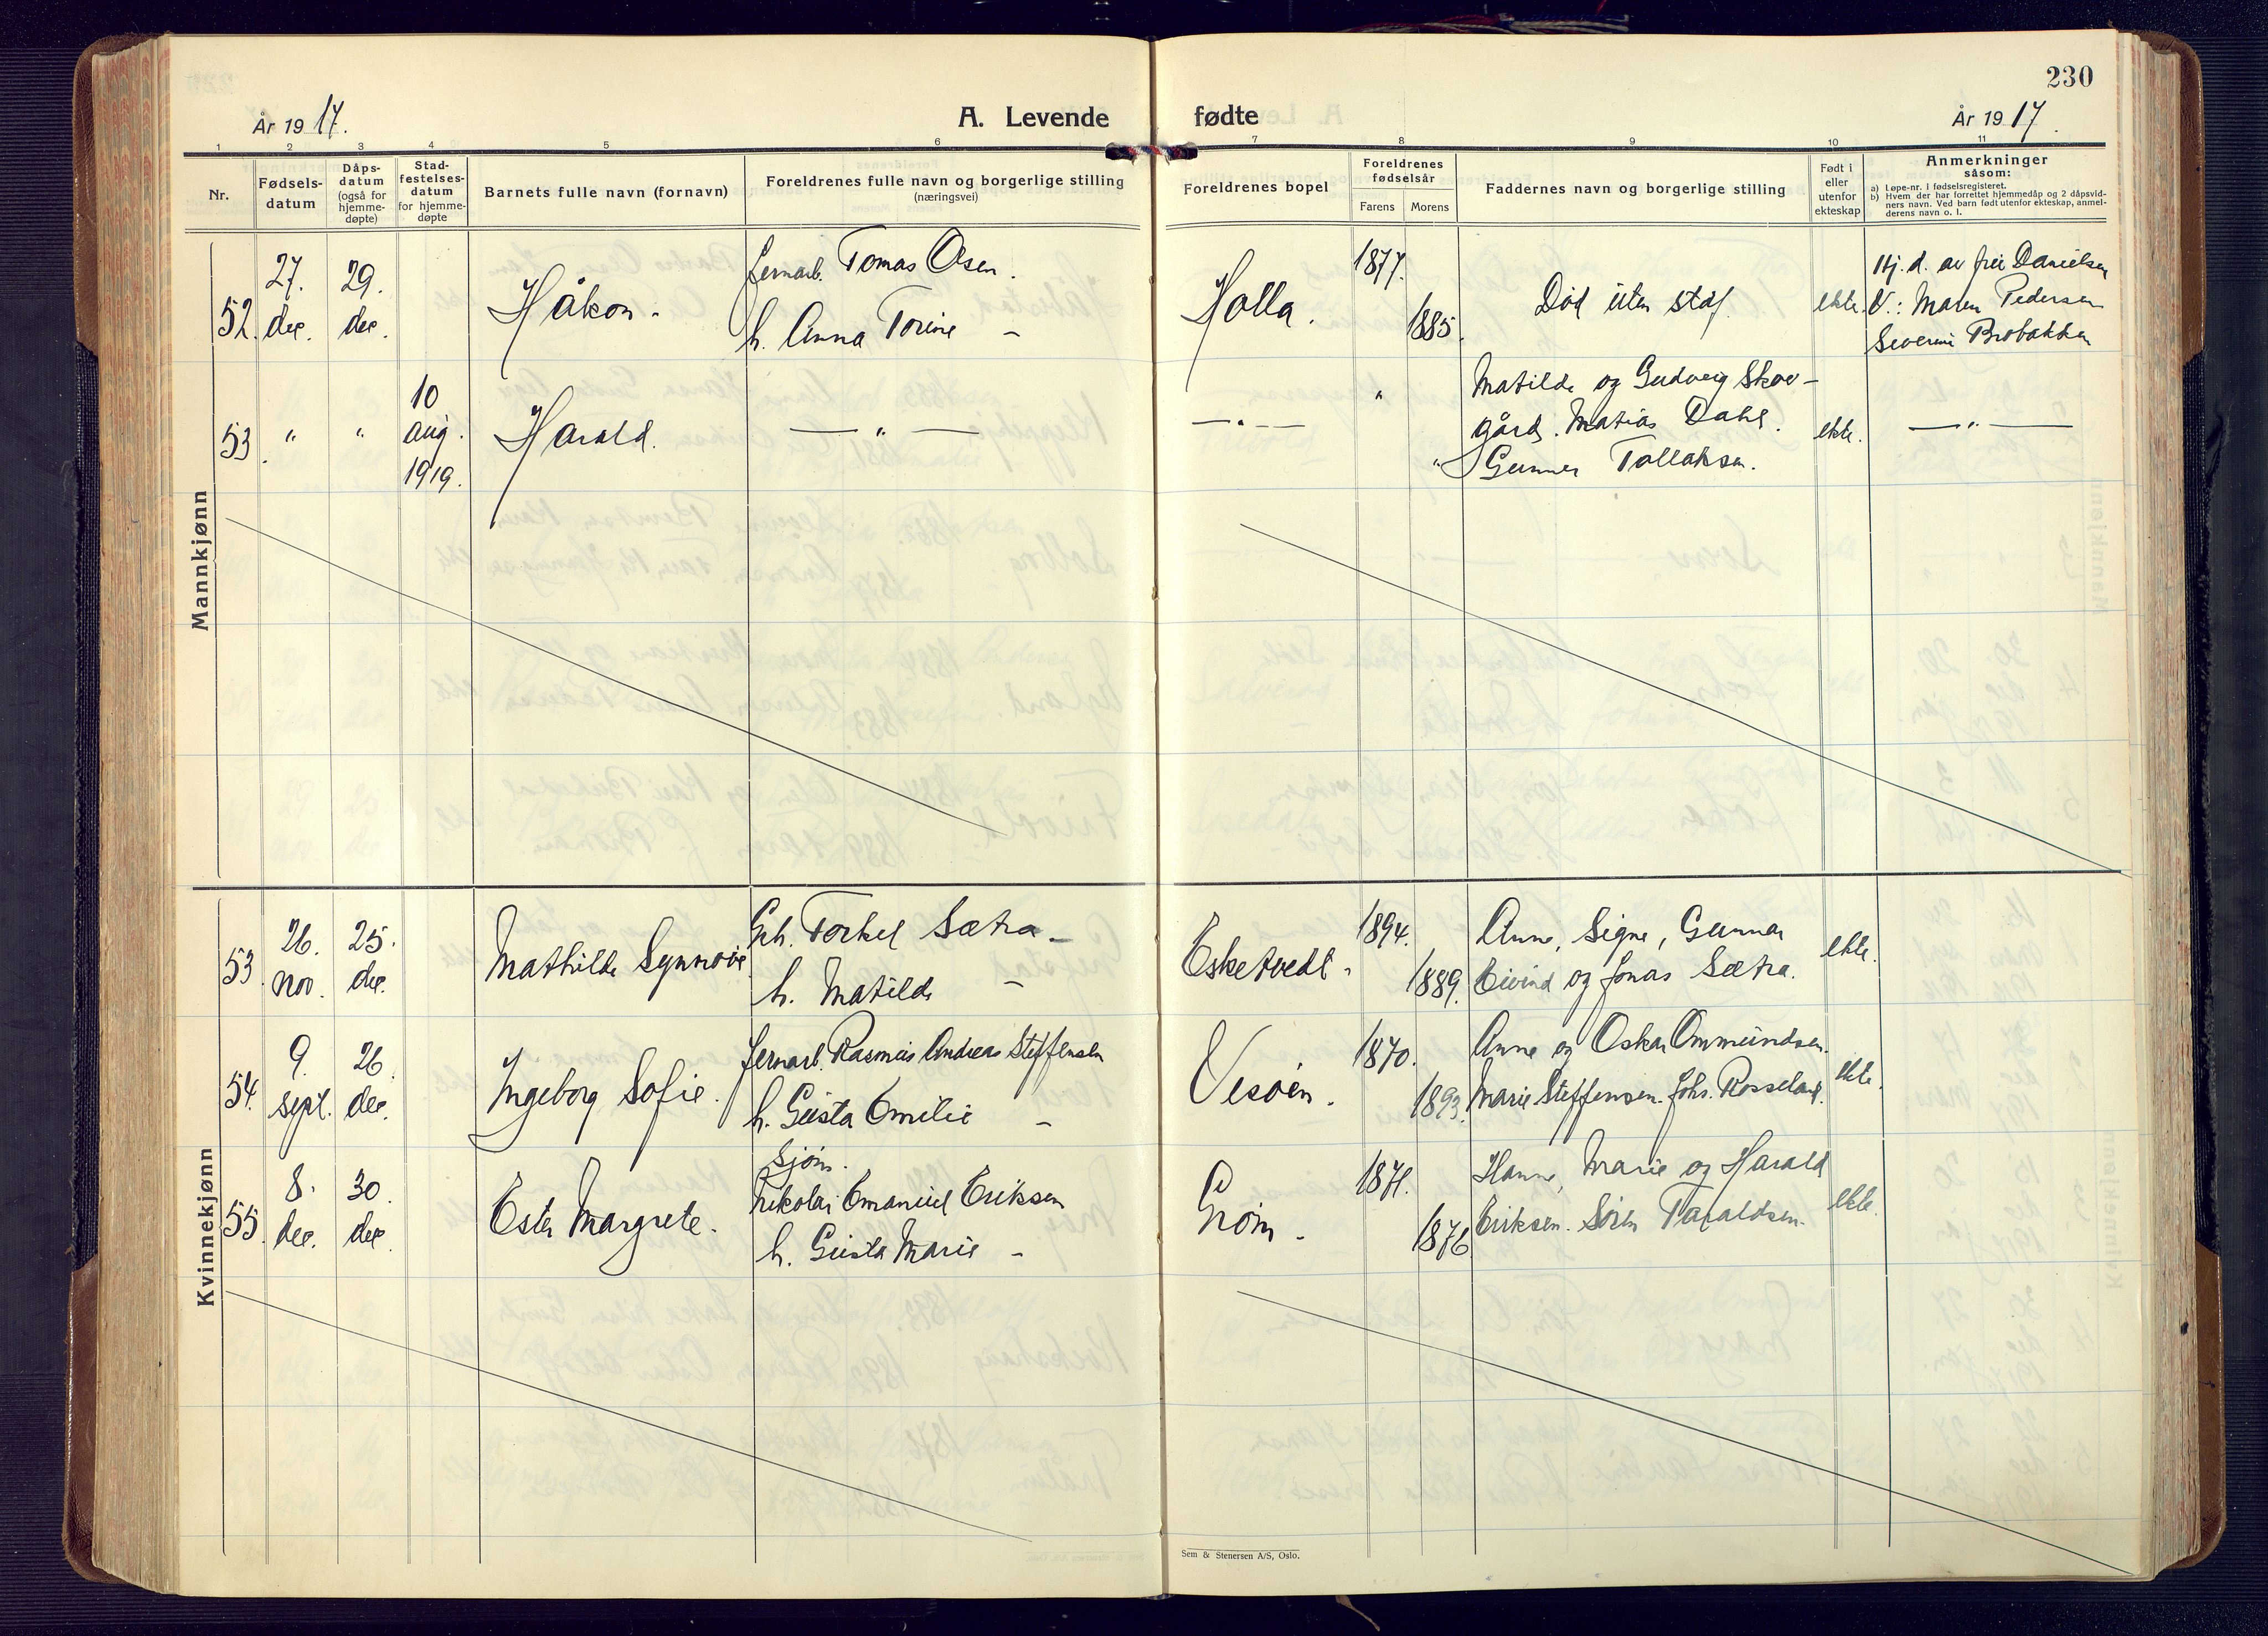 230
År 1917.
A. Levende
fødte
År 1917.
1 2 3 4 5 6 7 8 9 10 11
Nr.
Fødsels-
datum
Dåps-
datum
(også for
hjemme-
døpte)
Stad-
festelses-
datum
for hjemme-
døpte
Barnets fulle navn (fornavn)
Foreldrenes fulle navn og borgerlige stilling
(næringsvei)
Foreldrenes bopel
Foreldrenes
fødselsår
Farens
Morens
Faddernes navn og borgerlige stilling
Født i
eller
utenfor
ekteskap
Anmerkninger
såsom:
a) Løpe-nr. i fødselsregisteret.
b) Hvem der har forrettet hjemmedåp og 2 dåpsvid-
ners navn. Ved barn født utenfor ekteskap, anmel-
derens navn o. l.
Mannkjønn
52.
27.
dec.
29.
dec.
Håkon.
Jernarb. Tomas Osen.
h. Anna Torine —
Holla.
1877.
1885.
Død uten stdf.
ekte.
Hj. d. av frü Danielsen
V.: Maren Pedersen
Severine Brobakken
53.
"
"
10
aug.
1919.
Harald.
— " —
— " —
"
"
Matilde og Gudveig Skov-
gård. Matias Dahl.
Gunner Tallaksen.
ekte.
— " —
Kvinnekjønn
53.
26.
nov.
25.
dec.
Mathilde Synnøve
Gbh. Torkel Sætra —
h. Matilde —
Esketvedt.
1894.
1889.
Anne, Signe, Gunnar
Eivind og Jonas Sætra.
ekte.
54.
9.
sept.
26.
dec.
Ingeborg Sofie.
Jernarb. Rasmus Andreas Steffensen
h. Gusta Emilie —
Vesøen.
1870.
1893.
Anne og Oskar Ommundsen.
Marie Steffensen. Johs. Rosseland.
ekte.
55.
8.
dec.
30.
dec.
Ester Margrete.
Sjøm.
Nikolai Emanuel Eriksen
h. Gusta Marie —
Grøm.
1871.
1876
Hanne, Marie og Harald
Eriksen. Søren Taraldsen.
ekte.
Sem & Stenersen A/S, Oslo.